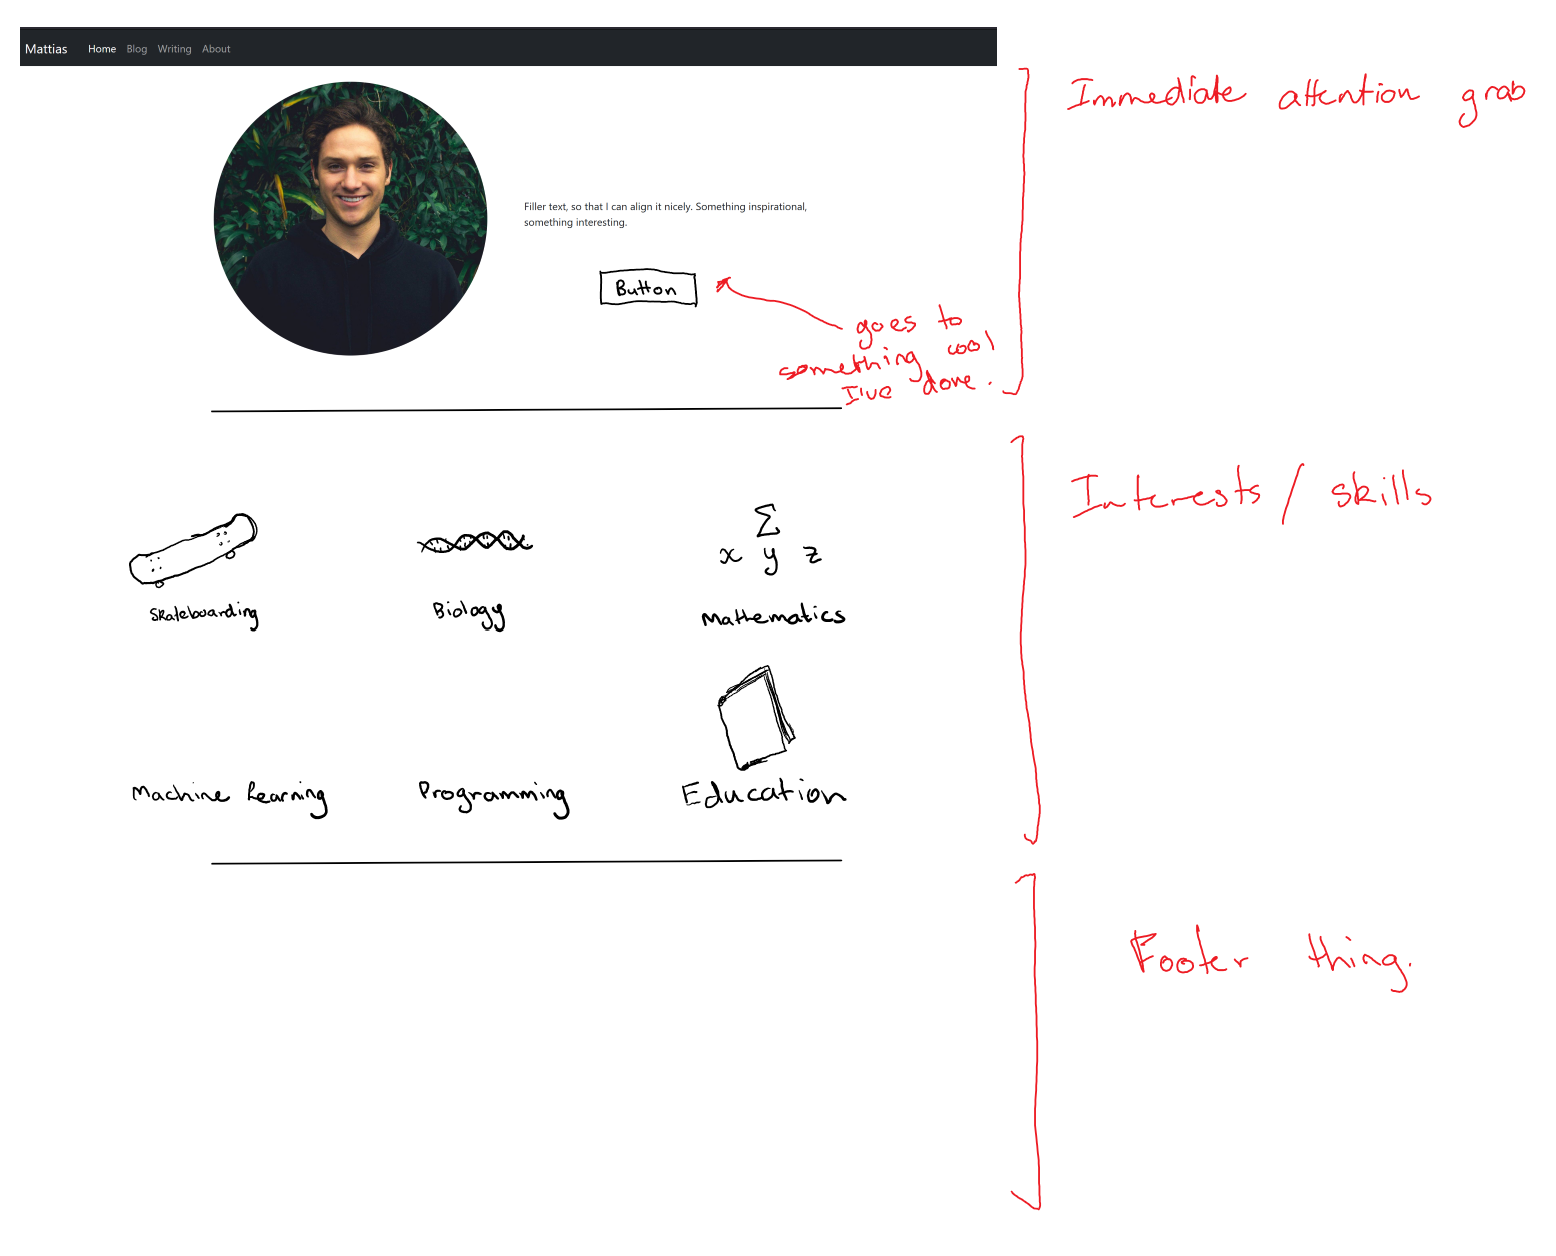 Mattias Home Blog Writing About
Immediate attention grab
Filler text, so that I can align it nicely. Something inspirational,
something interesting.
Button
goes to
something cool
I've done.
Interests / skills
Σ
x y z
Skateboarding Biology Mathematics
Machine Learning Programming Education
Footer thing.